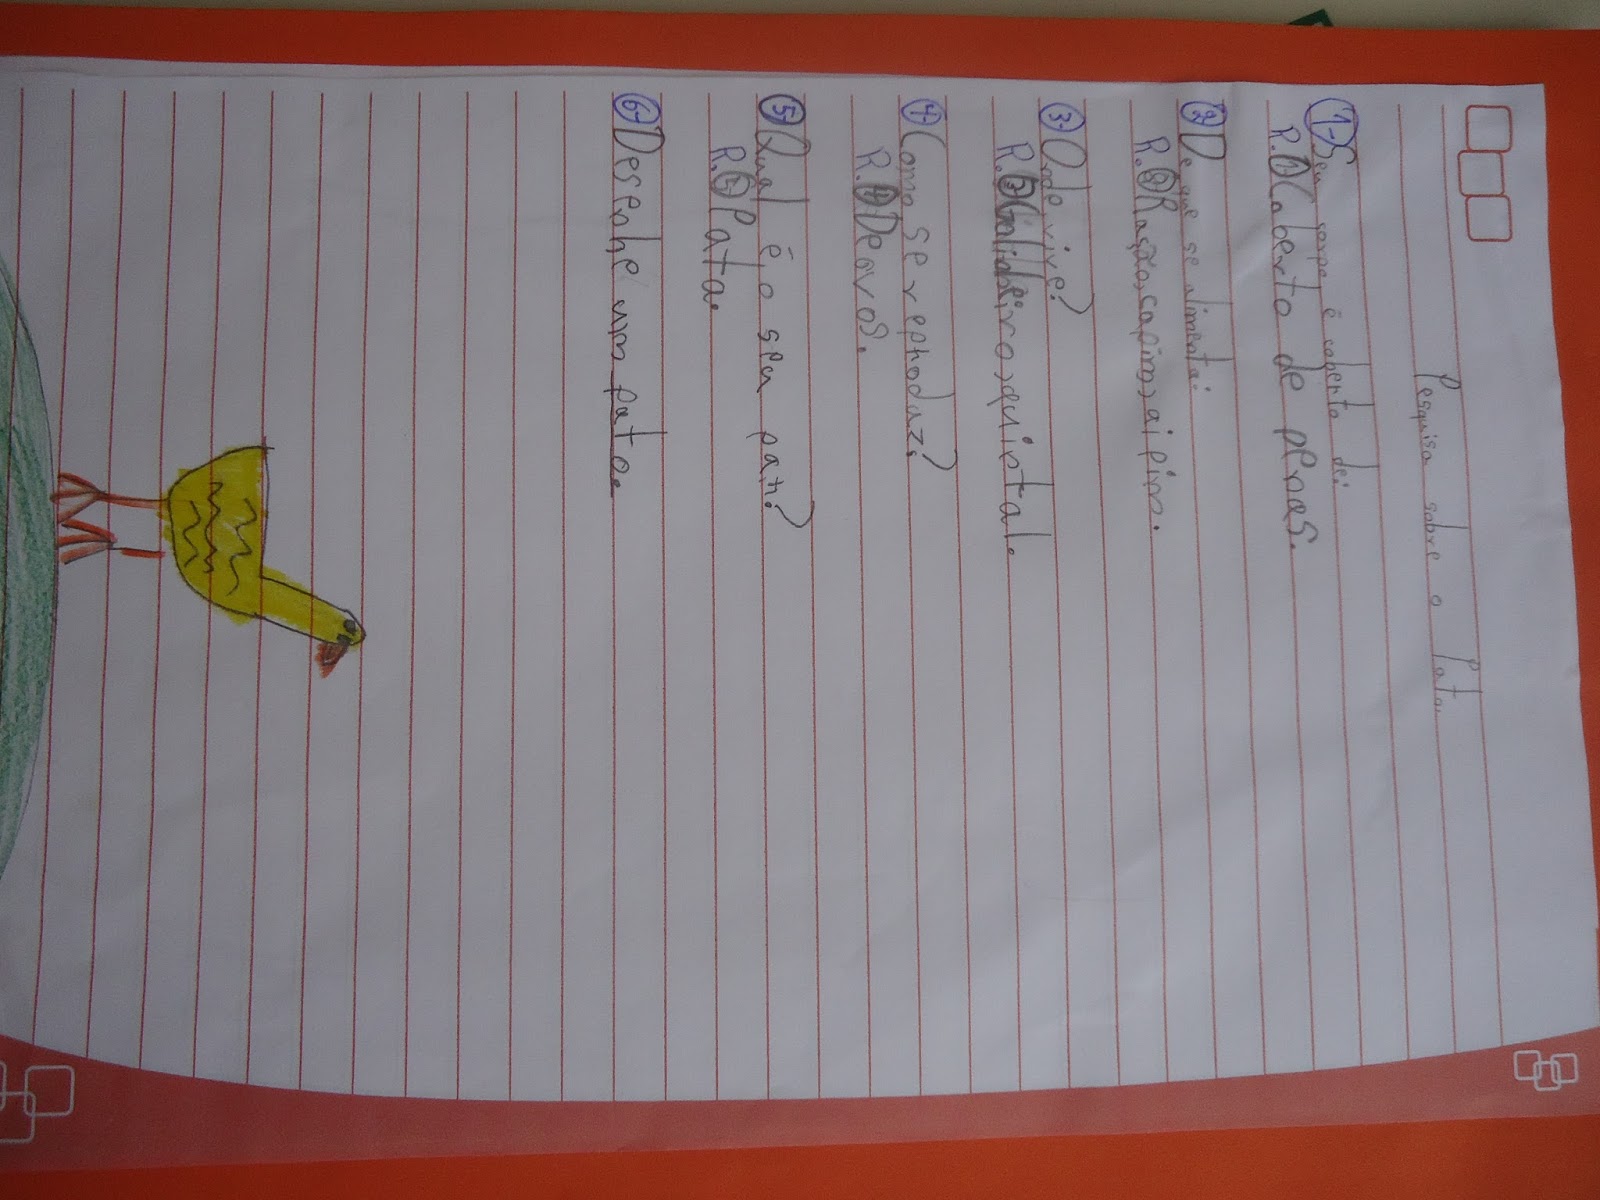 Pesquisa sobre o Pato.
1- Seu corpo é coberto de:
R.1 Caberto de penas.
2- De que se alimenta:
R.2 Ração, capim, aipim.
3- Onde vive?
R.3 Galinheiro, quintal.
4- Como se reproduz?
R.4 De ovos.
5- Qual é o seu par?
R.5 Pata.
6- Desenhe um pato.